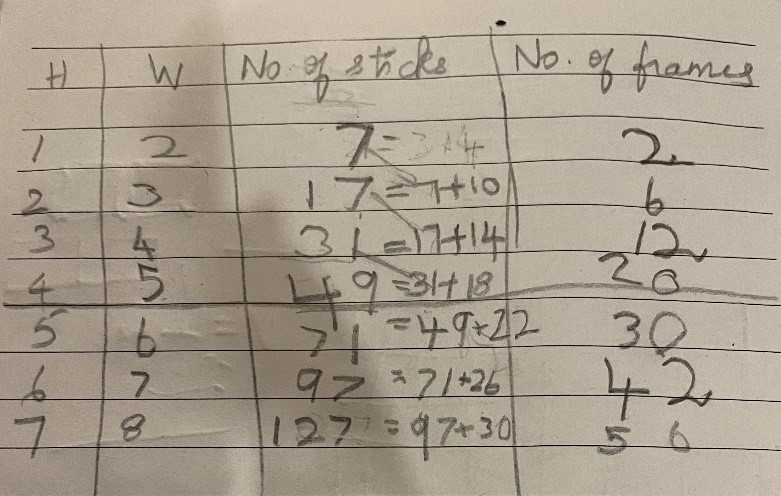 H W No. of sticks No. of frames
1 2 7 = 3+4 2
2 3 17 = 7+10 6
3 4 31 = 17+14 12
4 5 49 = 31+18 20
5 6 71 = 49+22 30
6 7 97 = 71+26 42
7 8 127 = 97+30 56